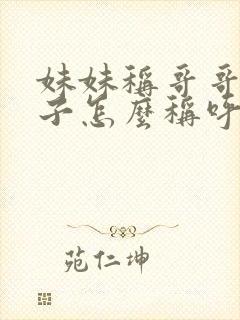 妹妹稱哥哥
子怎麼稱呼
苑仁坤